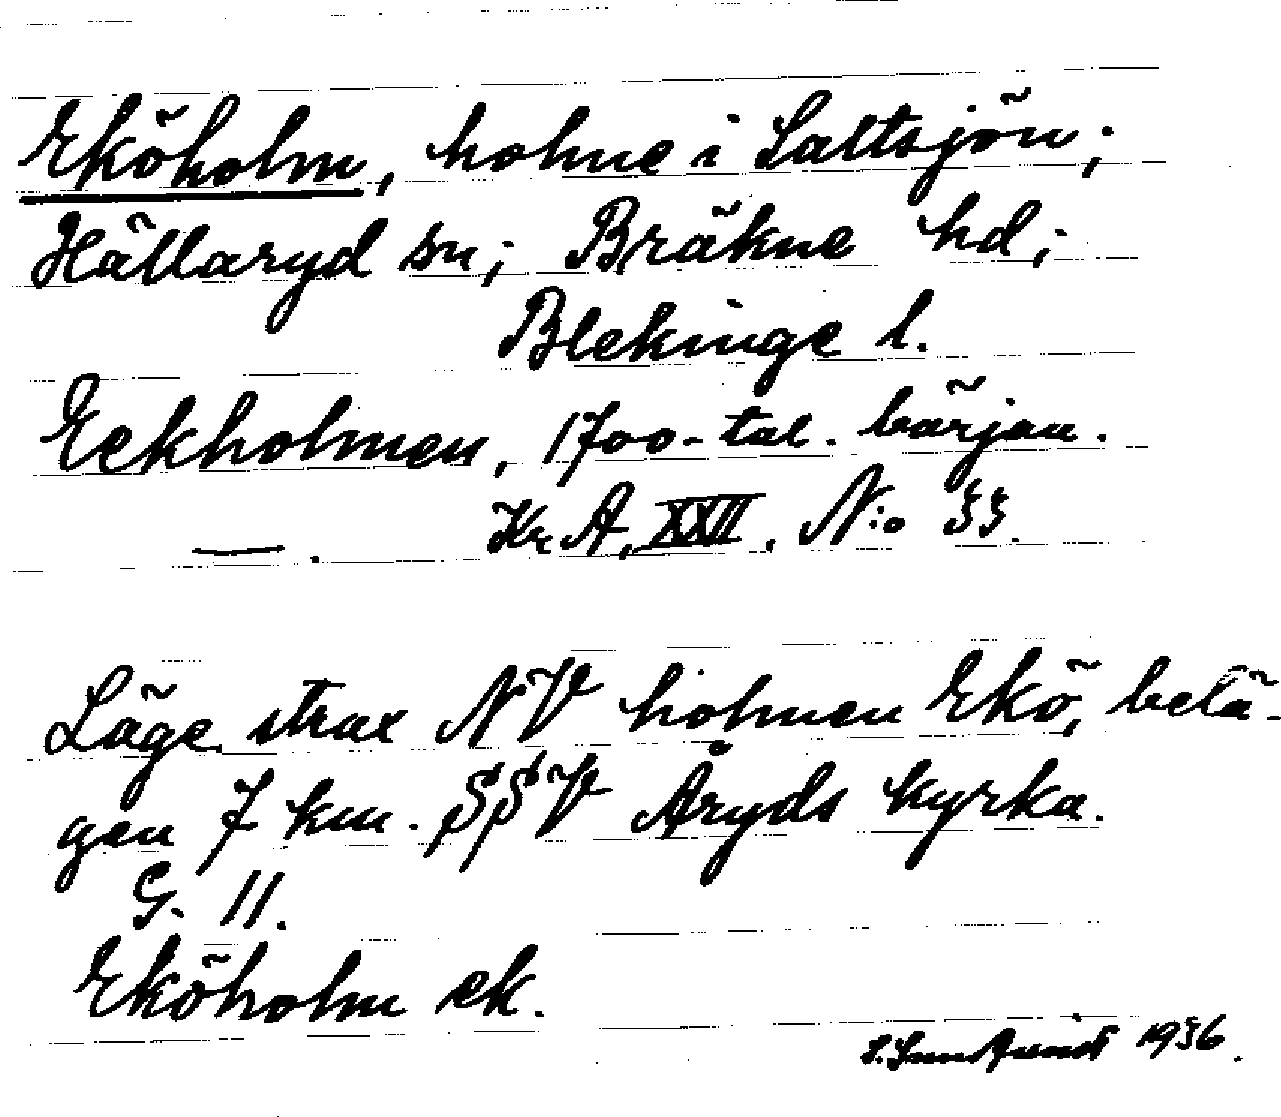 Eköholm, holme i Saltsjön;
Hällaryd sn; Bräkne hd;
Blekinge l.
Eekholmen, 1700-tal. början.
Kr. A, XXII. N:o 33.
— .
Läge strax NV holmen Ekö, belä-
gen 7 km. SSV Åryds kyrka.
G. II.
Eköholm ek.
1936.